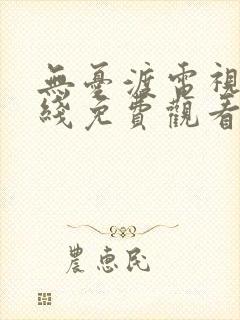 無憂渡電視
綫免費觀看
農惠民